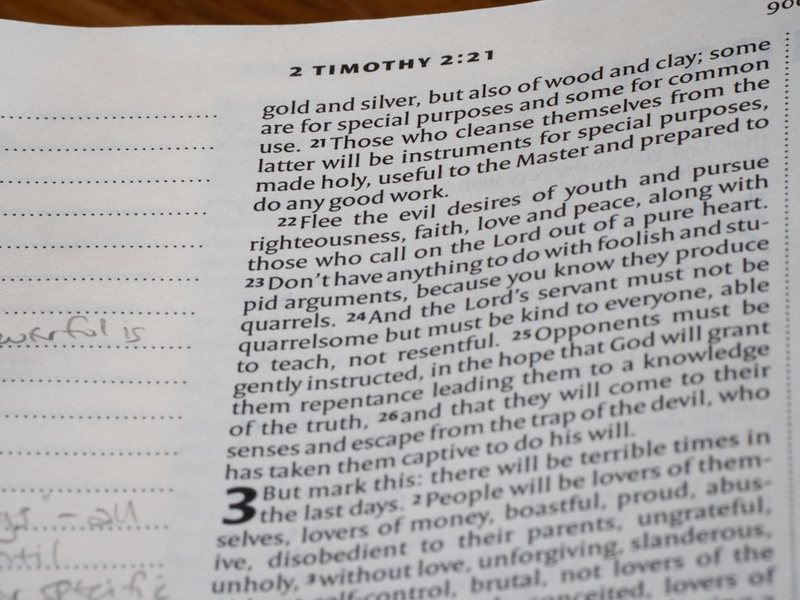 2 TIMOTHY 2:21
gold and silver, but also of wood and clay; some
are for special purposes and some for common
use. 21Those who cleanse themselves from the
latter will be instruments for special purposes,
made holy, useful to the Master and prepared to
do any good work.
22Flee the evil desires of youth and pursue
righteousness, faith, love and peace, along with
those who call on the Lord out of a pure heart.
23Don't have anything to do with foolish and stu-
pid arguments, because you know they produce
quarrels. 24And the Lord's servant must not be
quarrelsome but must be kind to everyone, able
to teach, not resentful. 25Opponents must be
gently instructed, in the hope that God will grant
them repentance leading them to a knowledge
of the truth, 26and that they will come to their
senses and escape from the trap of the devil, who
has taken them captive to do his will.
3 But mark this: there will be terrible times in
the last days. 2People will be lovers of them-
selves, lovers of money, boastful, proud, abus-
ive, disobedient to their parents, ungrateful,
unholy, 3without love, unforgiving, slanderous,
self-control, brutal, not lovers of the
conceited, lovers of
is
- all
specific